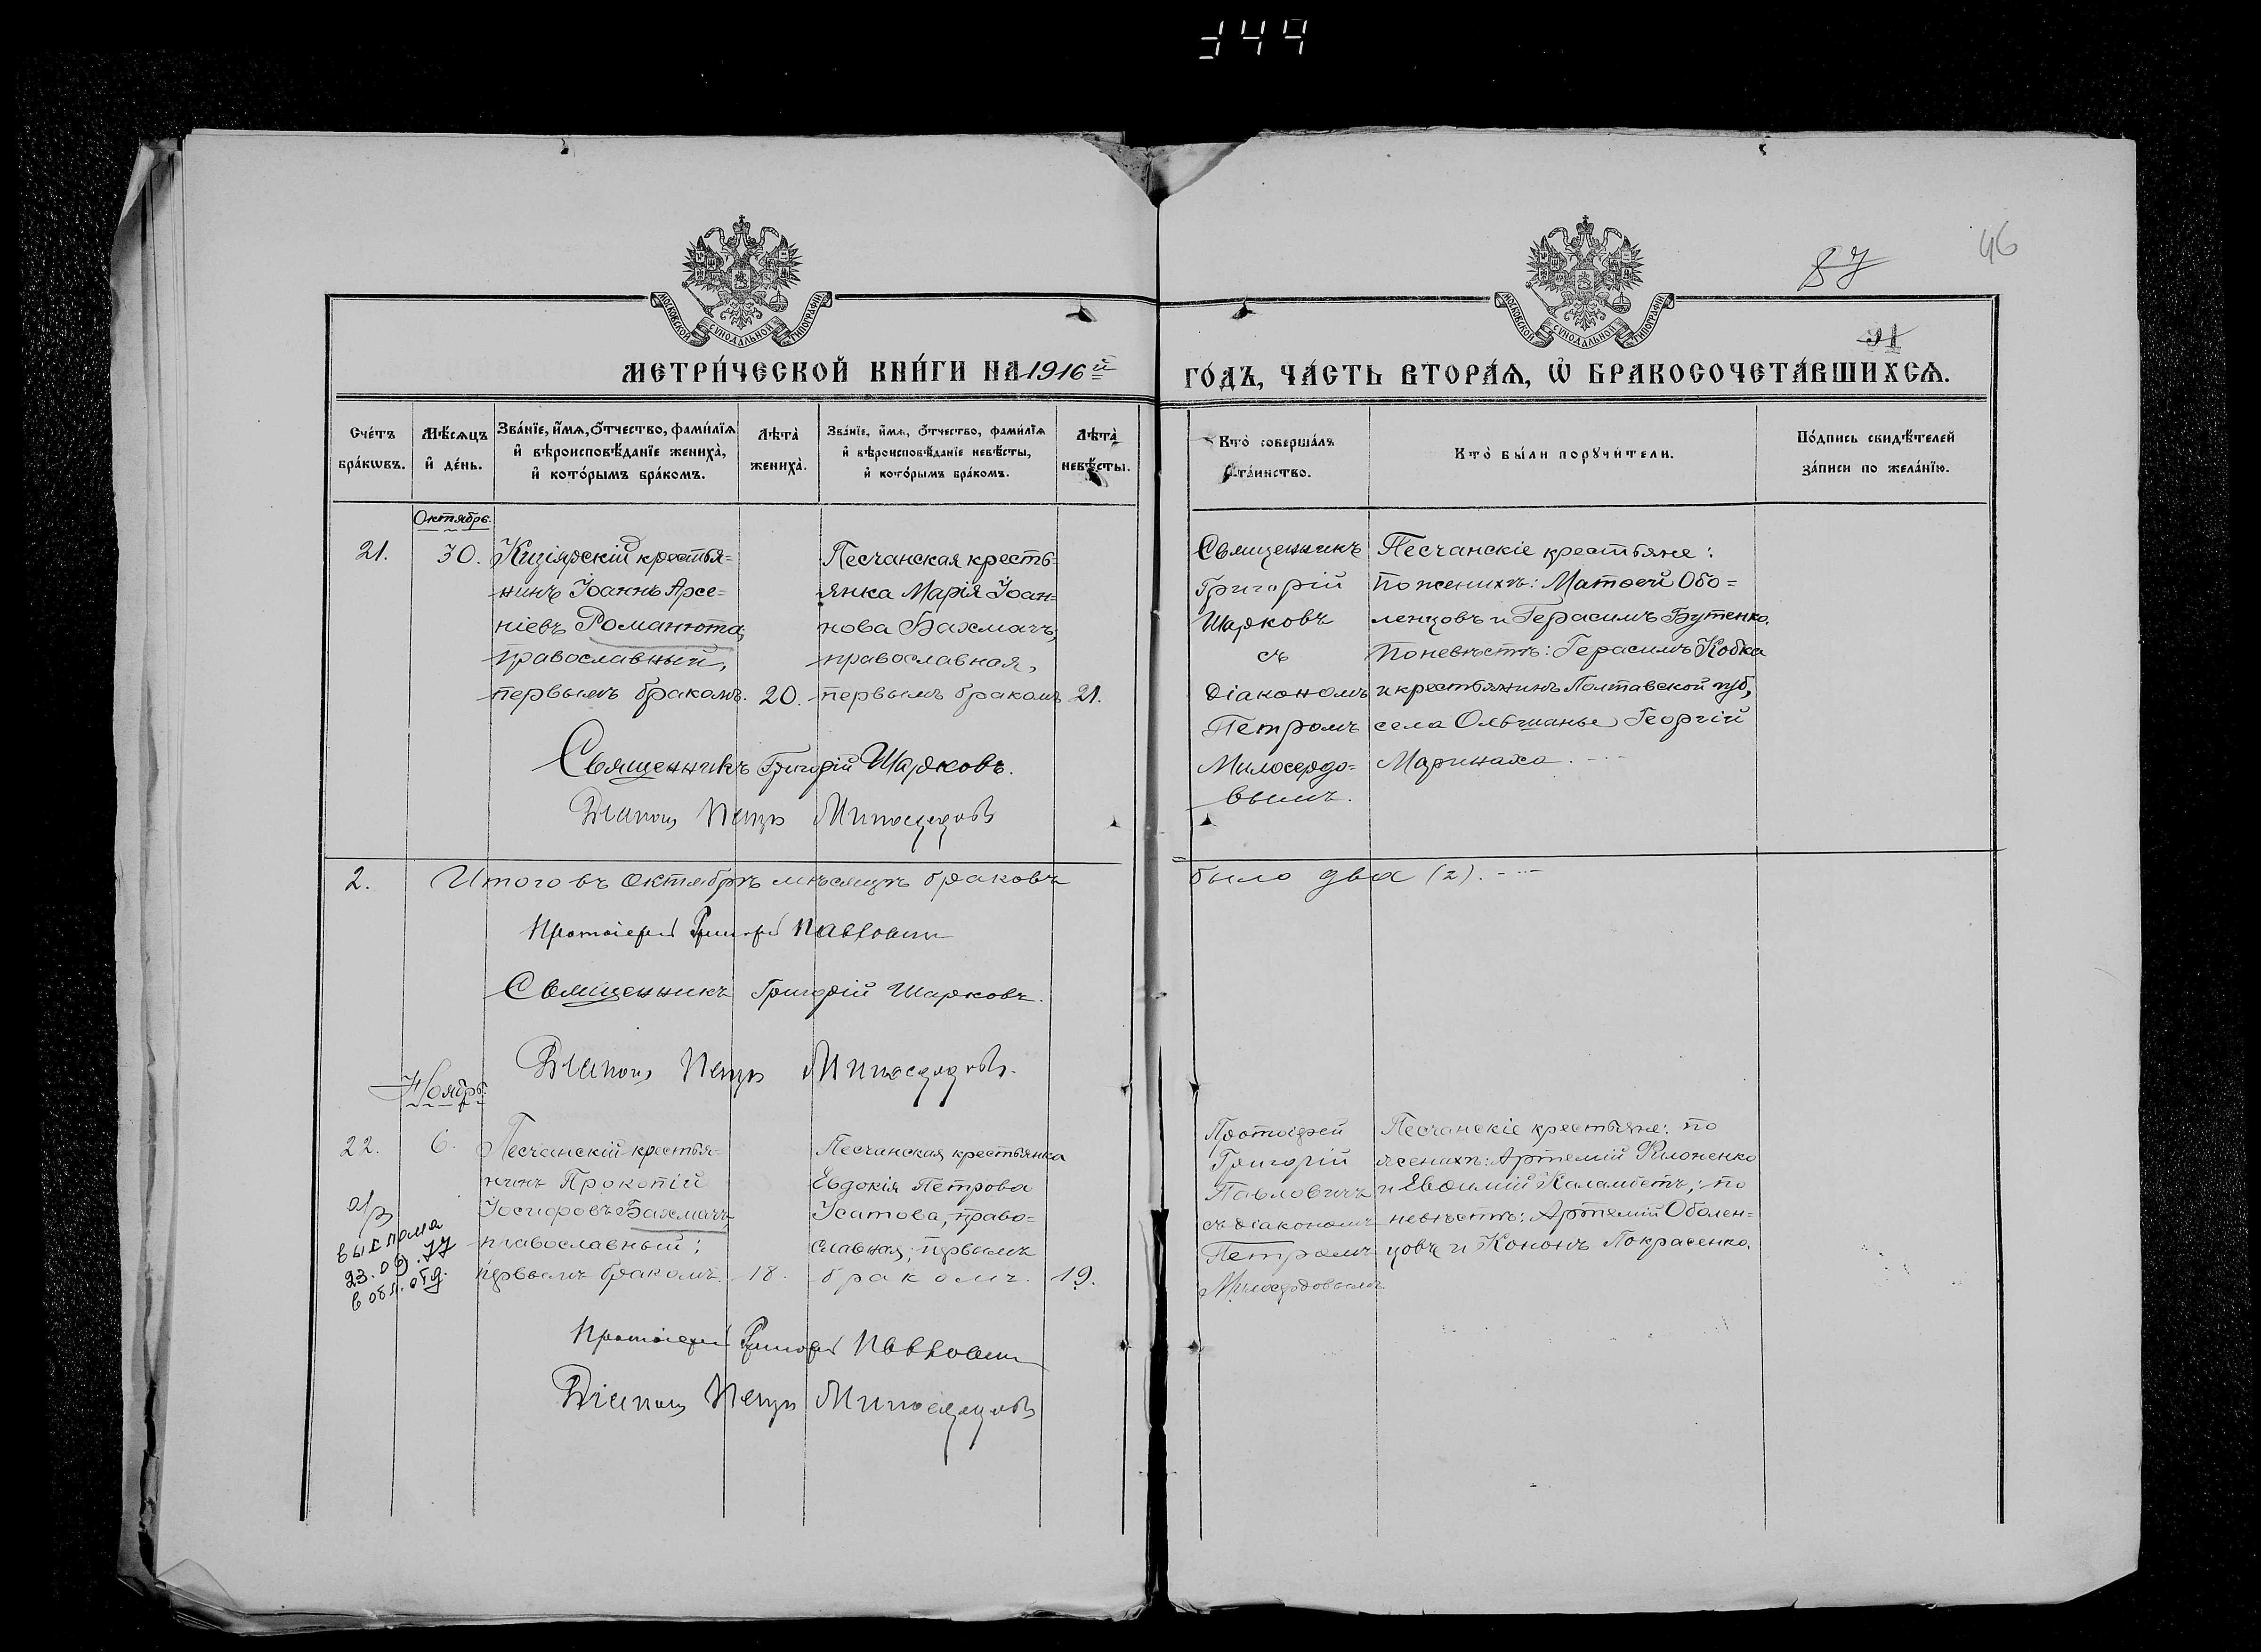 344
87
46
91
МОСКОВСКОЙ СѴНОДАЛЬНОЙ ТИПОГРАФІИ
МОСКОВСКОЙ СѴНОДАЛЬНОЙ ТИПОГРАФІИ
МЕТРИ́ЧЕСКОЙ КНИ́ГИ НА 1916й ГО́ДЪ, ЧА́СТЬ ВТОРА́Ѧ, Ѡ҆ БРАКОСОЧЕТА́ВШИХСѦ.
Сче́тъ бра́кѡвъ.
Мѣ́сѧцъ и҆ де́нь.
Зва́нїе, и҆́мѧ, ѻ҆́тчество, фами́лїѧ
и҆ вѣроисповѣ́данїе женихà,
и҆ кото́рымъ бра́комъ.
Лѣтà женихà.
Зва́нїе, и҆́мѧ, ѻ҆́тчество, фами́лїѧ
и҆ вѣроисповѣ́данїе невѣ́сты,
и҆ кото́рымъ бра́комъ.
Лѣтà невѣ́сты.
Кто̀ соверша́лъ
та́инство.
Кто̀ бы́ли порꙋчи́тели.
По́дпись свидѣ́телей
за́писи по жела́нїю.
Октябрь.
21.
30.
Кизіярскій крестья-
нинъ Іоаннъ Арсе-
ніевъ Романюта,
православный,
первымъ бракомъ.
20.
Песчанская кресть-
янка Марія Іоан-
нова Бахмачъ,
православная,
первымъ бракомъ
21.
Священникъ
Григорій
Шарковъ
съ
діакономъ
Петромъ
Милосердо-
вымъ.
Песчанскіе крестьяне:
по женихѣ: Матѳей Обо-
ленцовъ и Герасимъ Бутенко.
По невѣстѣ: Герасимъ Кобка
и крестьянинъ Полтавской губ,
села Ольшанье Георгій
Маринаха.
Священникъ Григорій Шарковъ.
Діаконъ Петръ Милосердовъ
2.
Итого въ октябрѣ мѣсяцѣ браковъ было два (2).
Протоіерей Григорій Павловичъ
Священникъ Григорій Шарковъ.
Діаконъ Петръ Милосердовъ.
Ноябрь.
22.
6.
Песчанскій крестья-
нинъ Прокопій
Іосифовъ Бахмачъ
православный;
первымъ бракомъ.
18.
Песчанская крестьянка
Евдокія Петрова
Усатова, право-
славная; первымъ
бракомъ.
19.
Протоіерей
Григорій
Павловичъ
съ діакономъ
Петромъ
Милосердовымъ.
Песчанскіе крестьяне: по
женихѣ: Артемій Филоненко
и Евѳимій Каламбетъ; по
невѣстѣ: Артемій Оболен-
цовъ и Кононъ Покрасенко.
выслала
23.09.77
в обл. отд.
Протоіерей Григорій Павловичъ
Діаконъ Петръ Милосердовъ